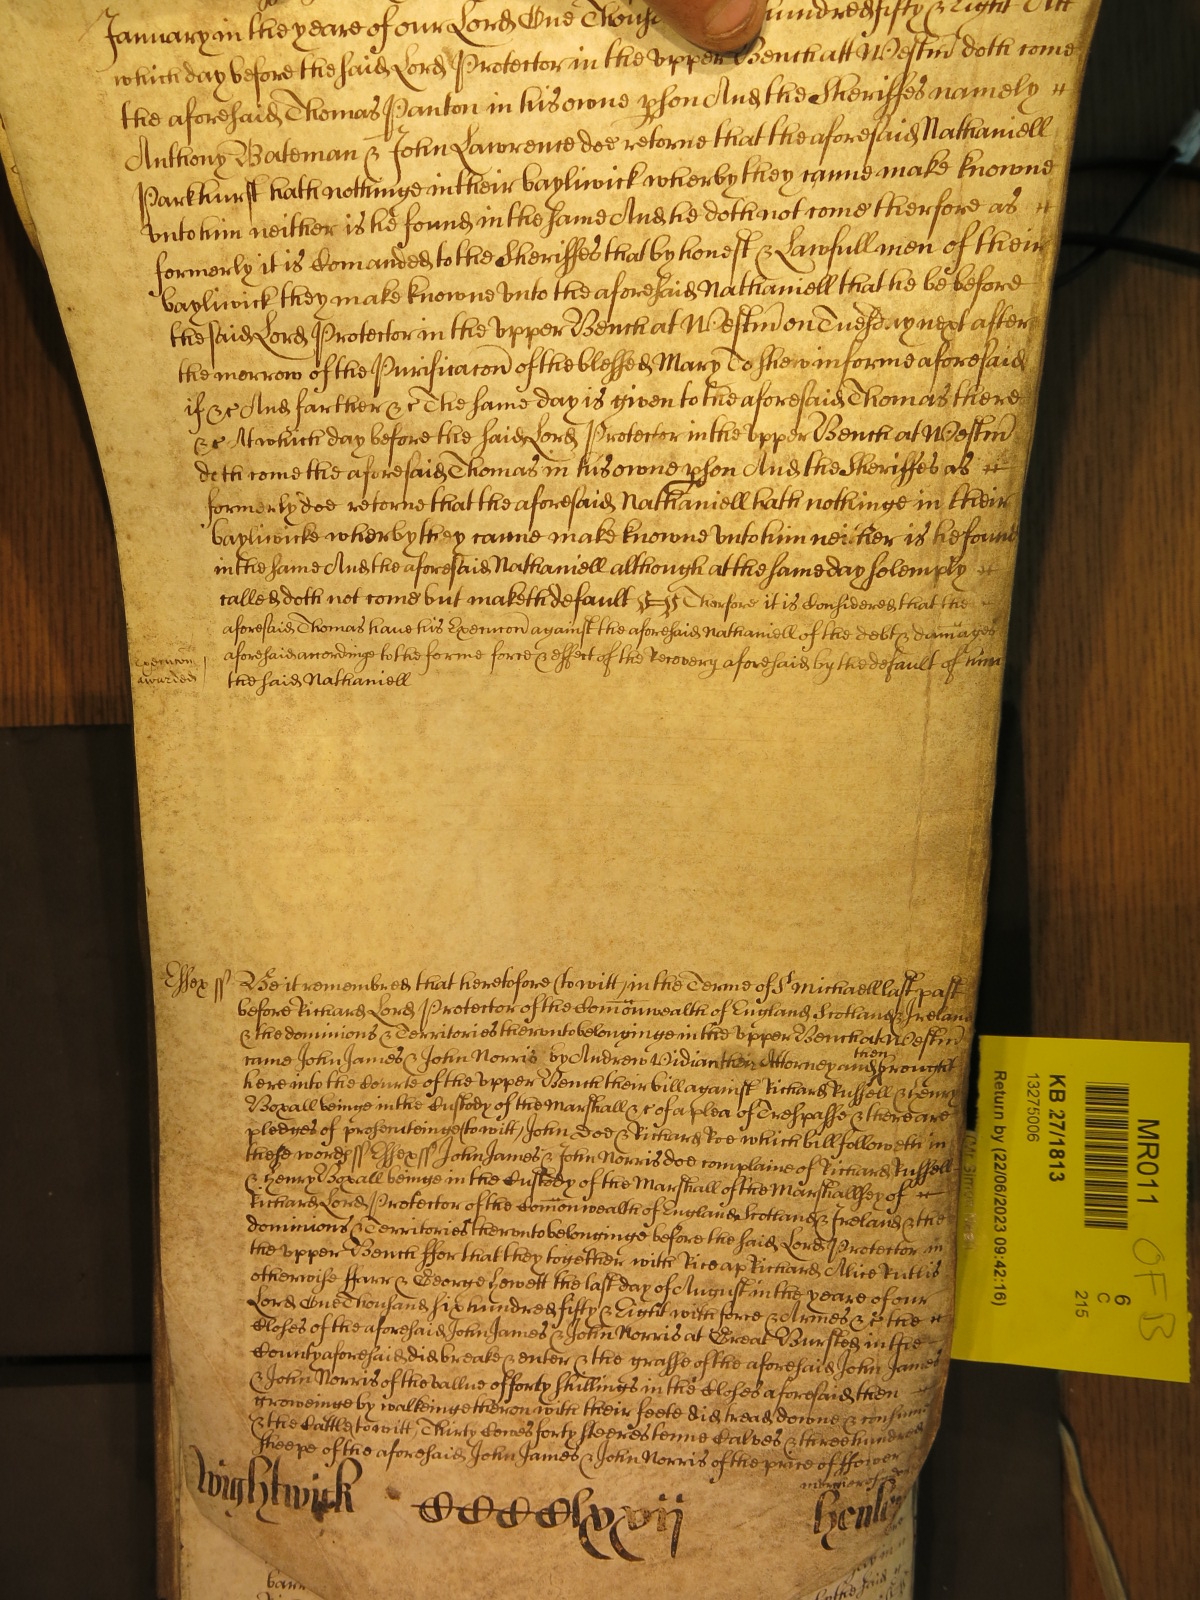 January in the yeare of our Lord One Thous hundred fifty & Eight Att
which day before the said Lord Protector in the upper Bench att Westm̃ doth come
the aforesaid Thomas Panton in his owne pson And the Sheriffes namely
Anthony Bateman & John Lawrence doe retorne that the aforesaid Nathaniell
Parkhurst hath nothinge in their bayliwick wherby they canne make knowne
vnto him neither is he found in the same And he doth not come therfore as
formerly it is Comanded to the Sheriffes that by honest & Lawfull men of their
bayliwick they make knowne vnto the aforesaid Nathaniell that he be before
the said Lord Protector in the vpper Bench at Westm̃ on Tuesday next after
the morrow of the Purificacon of the blessed Mary To shew in forme aforesaid
if &c And farther &c The same day is given to the aforesaid Thomas there
&c At which day before the said Lord Protector in the vpper Bench at Westm̃
doth come the aforesaid Thomas in his owne pson And the Sheriffes as
formerly doe retorne that the aforesaid Nathaniell hath nothinge in their
bayliwicke wherby they canne make knowne vnto him neither is he found
in the same And the aforesaid Nathaniell although at the same day solemply
called doth not come but maketh default Therfore it is Considered that the
aforesaid Thomas have his Execucon against the aforesaid Nathaniell of the debt & damages
aforesaid accordinge to the forme force & effect of the Recovery aforesaid by the default of him
the said Nathaniell
Execucon
awarded
Essex ss Be it remembred that heretofore (to witt) in the Terme of St Michaell last past
before Richard Lord Protector of the Comonwealth of England Scotland & Ireland
& the dominions & Territories therevnto belonginge in the vpper Bench at Westm̃
came John James & John Norris by Andrew Vidian their Attorney and then brought
here into the Courte of the vpper Bench their bill against Richard Russell & Henry
Boxall beinge in the Custody of the Marshall &c of a plea of Trespasse & there are
pledges of prosecuteinge (to witt) John Doe & Richard Roe which bill followeth in
these words ss Essex ss John James & John Norris doe complaine of Richard Russell
& Henry Boxall beinge in the Custody of the Marshall of the Marshallsey of
Richard Lord Protector of the Comonwealth of England Scotland & Ireland & the
dominions & Territories therevnto belonginge before the said Lord Protector in
the vpper Bench ffor that they together with Rice ap Richard Alice Rutlis
otherwise ffarr & George Hewett the last day of August in the yeare of our
Lord One Thousand six hundred fifty & Eight with force & Armes &c the
Closes of the aforesaid John James & John Norris at Great Bursted in the
County aforesaid did breake & enter & the grasse of the aforesaid John James
& John Norris of the vallue of forty shillings in the Closes aforesaid then
groweinge by walkeinge theron with their feete did tread downe & consume
& the Cattle (to witt) Thirty Cowes forty steeres tenne Calves & three hundred
sheepe of the aforesaid John James & John Norris of the price of ffower
Wightwick CCCClxxvij Henley
MR011
KB 27/1813
13275006
Return by (22/06/2023 09:42:16)
6
C
215
OFB